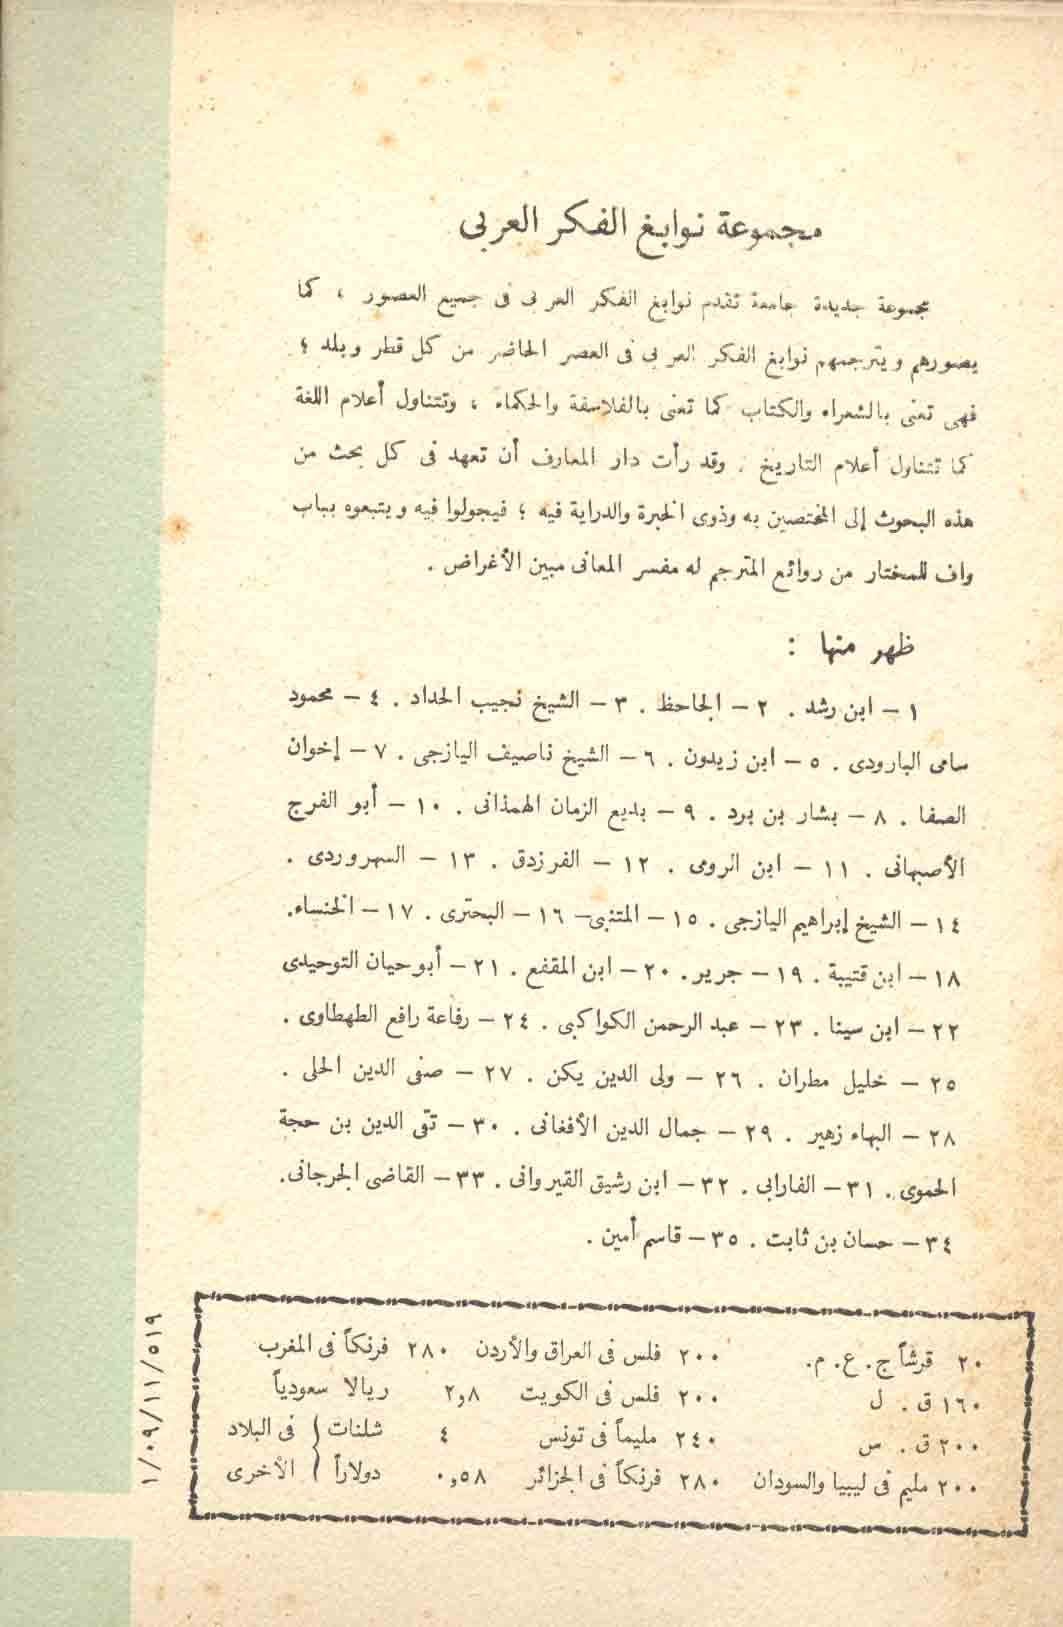 مجموعة نوابغ الفكر العربى
مجموعة جديدة جامعة تقدم نوابغ الفكر العربى فى جميع العصور ، كما
يصورهم ويترجمهم نوابغ الفكر العربى فى العصر الحاضر من كل قطر وبلد ؛
فهى تعنى بالشعراء والكتاب كما تعنى بالفلاسفة والحكماء ، وتتناول أعلام اللغة
كما تتناول أعلام التاريخ . وقد رأت دار المعارف أن تعهد فى كل بحث من
هذه البحوث إلى المختصين به وذوى الخبرة والدراية فيه ؛ فيجولوا فيه ويتبعوه بباب
واف للمختار من روائع المترجم له مفسر المعانى مبين الأغراض .
ظهر منها :
١ – ابن رشد . ٢ – الجاحظ . ٣ – الشيخ نجيب الحداد . ٤ – محمود
سامى البارودى . ٥ – ابن زيدون . ٦ – الشيخ ناصيف اليازجى . ٧ – إخوان
الصفا . ٨ – بشار بن برد . ٩ – بديع الزمان الهمذانى . ١٠ – أبو الفرج
الأصبهانى . ١١ – ابن الرومى . ١٢ – الفرزدق . ١٣ – السهروردى .
١٤ – الشيخ إبراهيم اليازجى . ١٥ – المتنبى – ١٦ – البحترى . ١٧ – الخنساء.
١٨ – ابن قتيبة . ١٩ – جرير . ٢٠ – ابن المقفع . ٢١ – أبو حيان التوحيدى
٢٢ – ابن سينا . ٢٣ – عبد الرحمن الكواكبى . ٢٤ – رفاعة رافع الطهطاوى .
٢٥ – خليل مطران . ٢٦ – ولى الدين يكن . ٢٧ – صفى الدين الحلى .
٢٨ – البهاء زهير . ٢٩ – جمال الدين الأفغانى . ٣٠ – تقى الدين بن حجة
الحموى . ٣١ – الفارابى . ٣٢ – ابن رشيق القيروانى . ٣٣ – القاضى الجرجانى.
٣٤ – حسان بن ثابت . ٣٥ – قاسم أمين .
٢٠ قرشاً ج . ع . م . ٢٠٠ فلس فى العراق والأردن ٢٨٠ فرنكاً فى المغرب
١٦٠ ق . ل ٢٠٠ فلس فى الكويت ٢,٨ ريالا سعودياً
٢٠٠ ق . س ٢٤٠ مليماً فى تونس ٤ شلنات } فى البلاد
٢٠٠ مليم فى ليبيا والسودان ٢٨٠ فرنكاً فى الجزائر ٠,٥٨ دولاراً } الأخرى
١/٠٩/١١/٥١٩